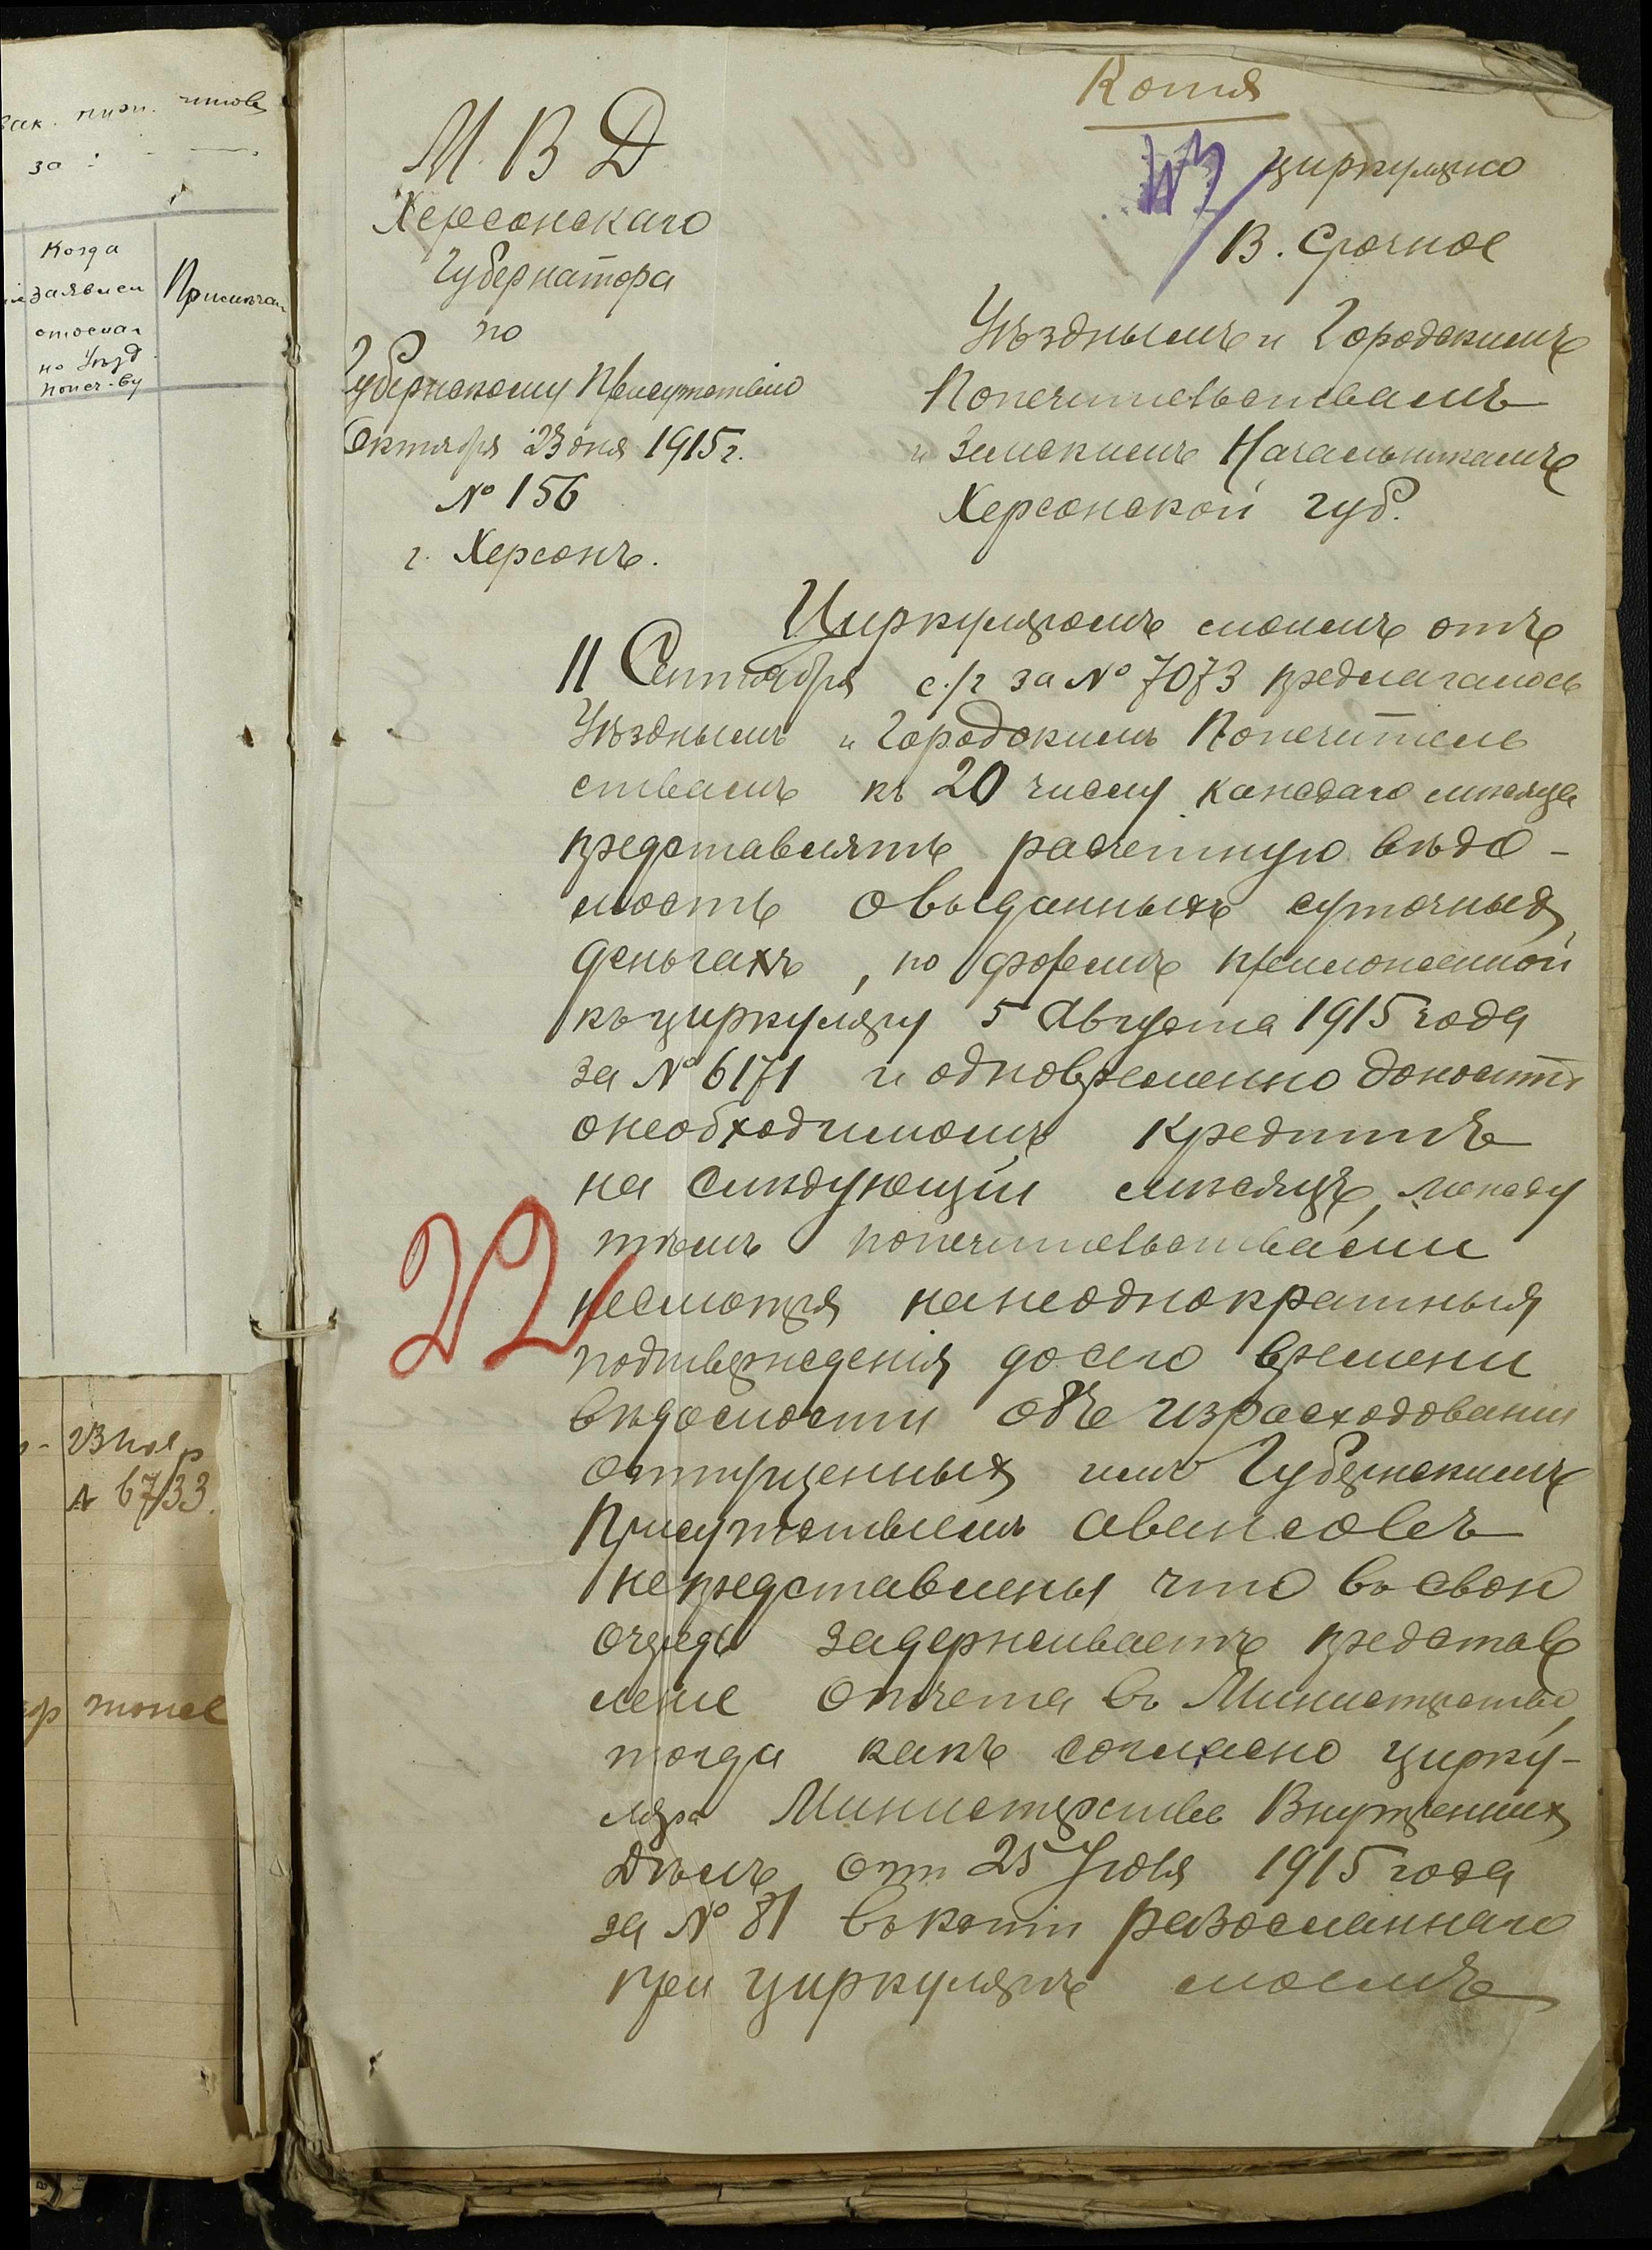 Когда
заявлен
отослан
по Уѣзд.
попеч-ву
за
№ 6733.
Копія
М. В. Д
Херсонскаго
Губернатора
по
Губернскому Присутствію
Октября 23 дня 1915 г.
№ 156
г. Херсонъ.
циркулярно
В. Срочное
Уѣзднымъ и Городскимъ
Попечительствамъ
и Земскимъ Начальникамъ
Херсонской губ.
Циркуляромъ моимъ отъ
11 Сентября с./г за № 7073 предлагалось
Уѣзднымъ и Городскимъ Попечитель
ствамъ къ 20 числу каждаго мѣсяца
представлять расчетную вѣдо-
мость о выданныхъ суточныхъ
деньгахъ, по формѣ приложенной
къ циркуляру 5 Августа 1915 года
за № 6171 и одновременно доносить
о необходимомъ кредитѣ
на слѣдующій мѣсяцъ, между
тѣмъ попечительствами
несмотря на неоднократныя
подтвержденія до сего времени
вѣдомости объ израсходованіи
отпущенныхъ имъ Губернскимъ
Присутствіемъ авансовъ
не представлены что въ свою
очередь задерживаетъ представ
леніе отчета въ Министерство,
тогда какъ согласно цирку-
ляра Министерства Внутреннихъ
Дѣлъ отъ 25 Іюля 1915 года
за № 81 въ копіи разосланнаго
при циркулярѣ моемъ
22